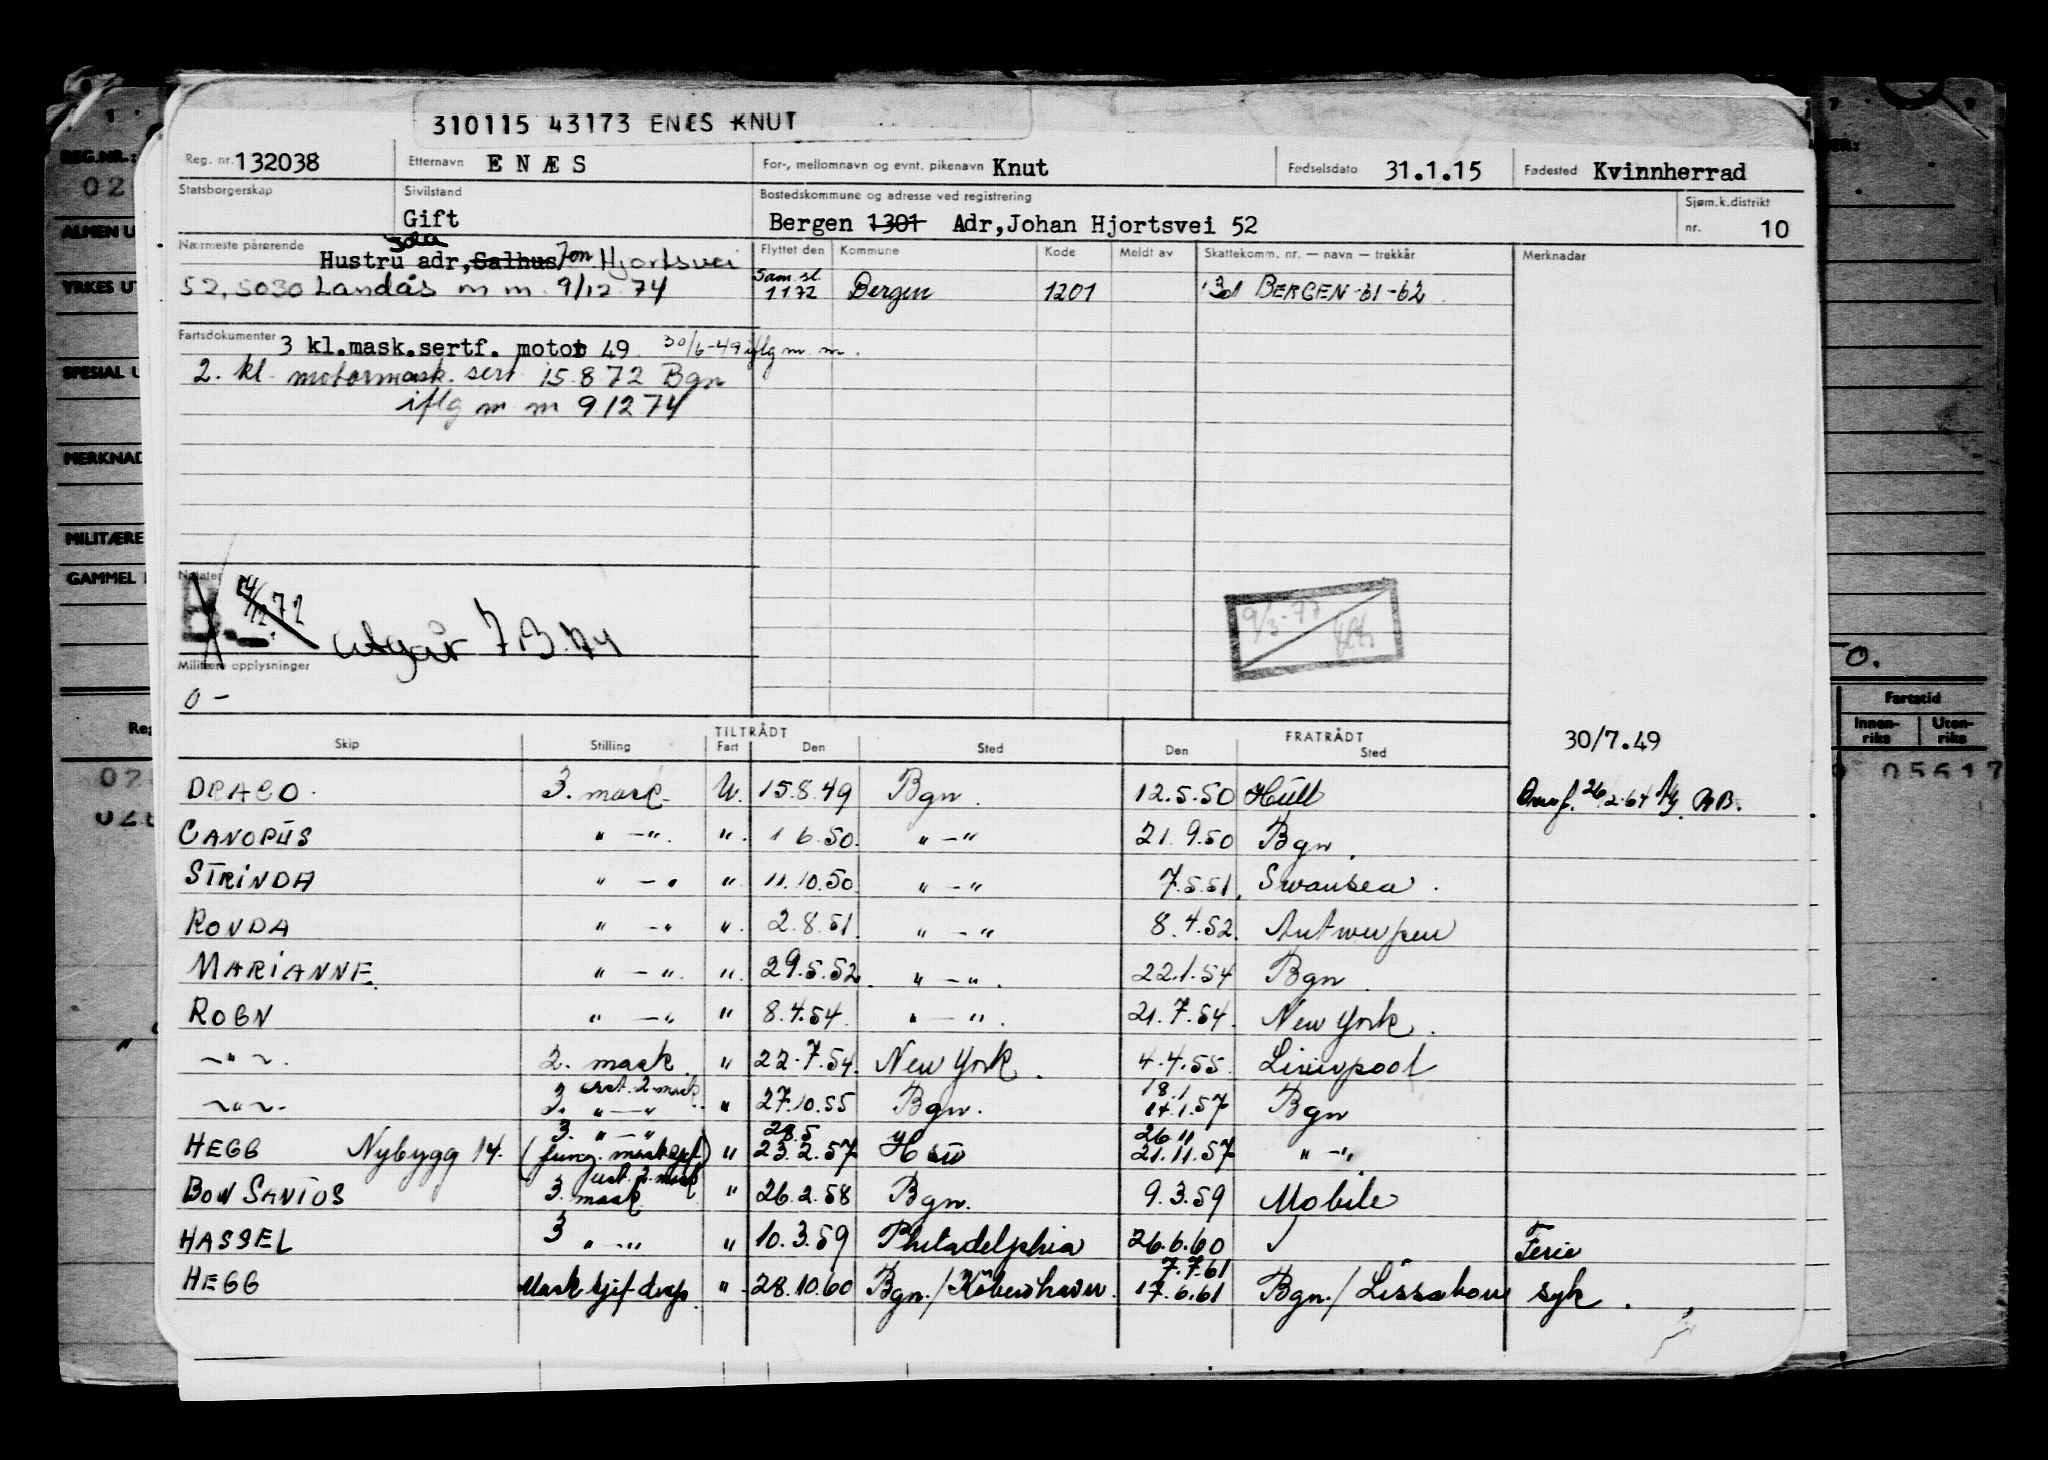 310115 43173 ENÆS KNUT
Reg. nr. 132038 Etternavn ENÆS For-, mellomnavn og evnt. pikenavn Knut Fødselsdato 31.1.15 Fødested Kvinnherrad
Statsborgerskap Sivilstand Gift Bostedskommune og adresse ved registrering Bergen 1301 Adr, Johan Hjortsvei 52 Sjøm.k.distrikt nr. 10
Nærmeste pårørende Flyttet den Kommune Kode Meldt av Skattekomm. nr. — navn — trekkår Merknader
Hustru adr, Salhus Hjortsvei
52, 5030 Landås m m 9/12 74 1 1 72 Bergen 1201 BERGEN -61-62
Fartsdokumenter 3 kl.mask.sertf. motor 49 30/6-49 iflg m. m.
2. kl motormask. sert 15.8 72 Bgn
iflg m m 9 12 74
Notater
utgår
9/3-77
Militære opplysninger
0 -
Skip Stilling TILTRÅDT Fart Den Sted FRATRÅDT Den Sted 30/7.49
DRAGO 3. mask. U. 15.8.49 Bgn. 12.5.50 Hull
CANOPUS " — " " 1 6.50. " — " 21.9.50 Bgn.
STRINDA " — " " 11.10.50 " — " 7.5.51. Swansea
RONDA " — " " 2.8.51. " — " 8.4.52. Antwerpen
MARIANNE " — " " 29.5.52. " — " 22.1.54 Bgn
ROGN " — " " 8.4.54. " — " 21.7.54. New York
— " — 2. mask. " 22.7.54. New York. 4.4.55. Liverpool
— " — 3. " — " " 27.10.55 Bgn. 18.1 17.1.57 Bgn
HEGG Nybygg 14. 3. " — " " 28.5 23.2.57 26.11 21.11.57 " — "
BOW SANTOS 3. mask " 26.2.58 Bgn. 9.3.59 Mobile
HASSEL 3 " — " " 10.3.59 Philadelphia 26.6.60 Ferie
HEGG " 28.10.60 Bgn./København. 7.7.61 17.6.61 Bgn./Lissabon syk.
REG.NR.:
ALMEN U
YRKES UT
SPESIAL U
MERKNAD
MILITÆRE
GAMMEL
Fartstid
Innen-riks Uten-riks
05617